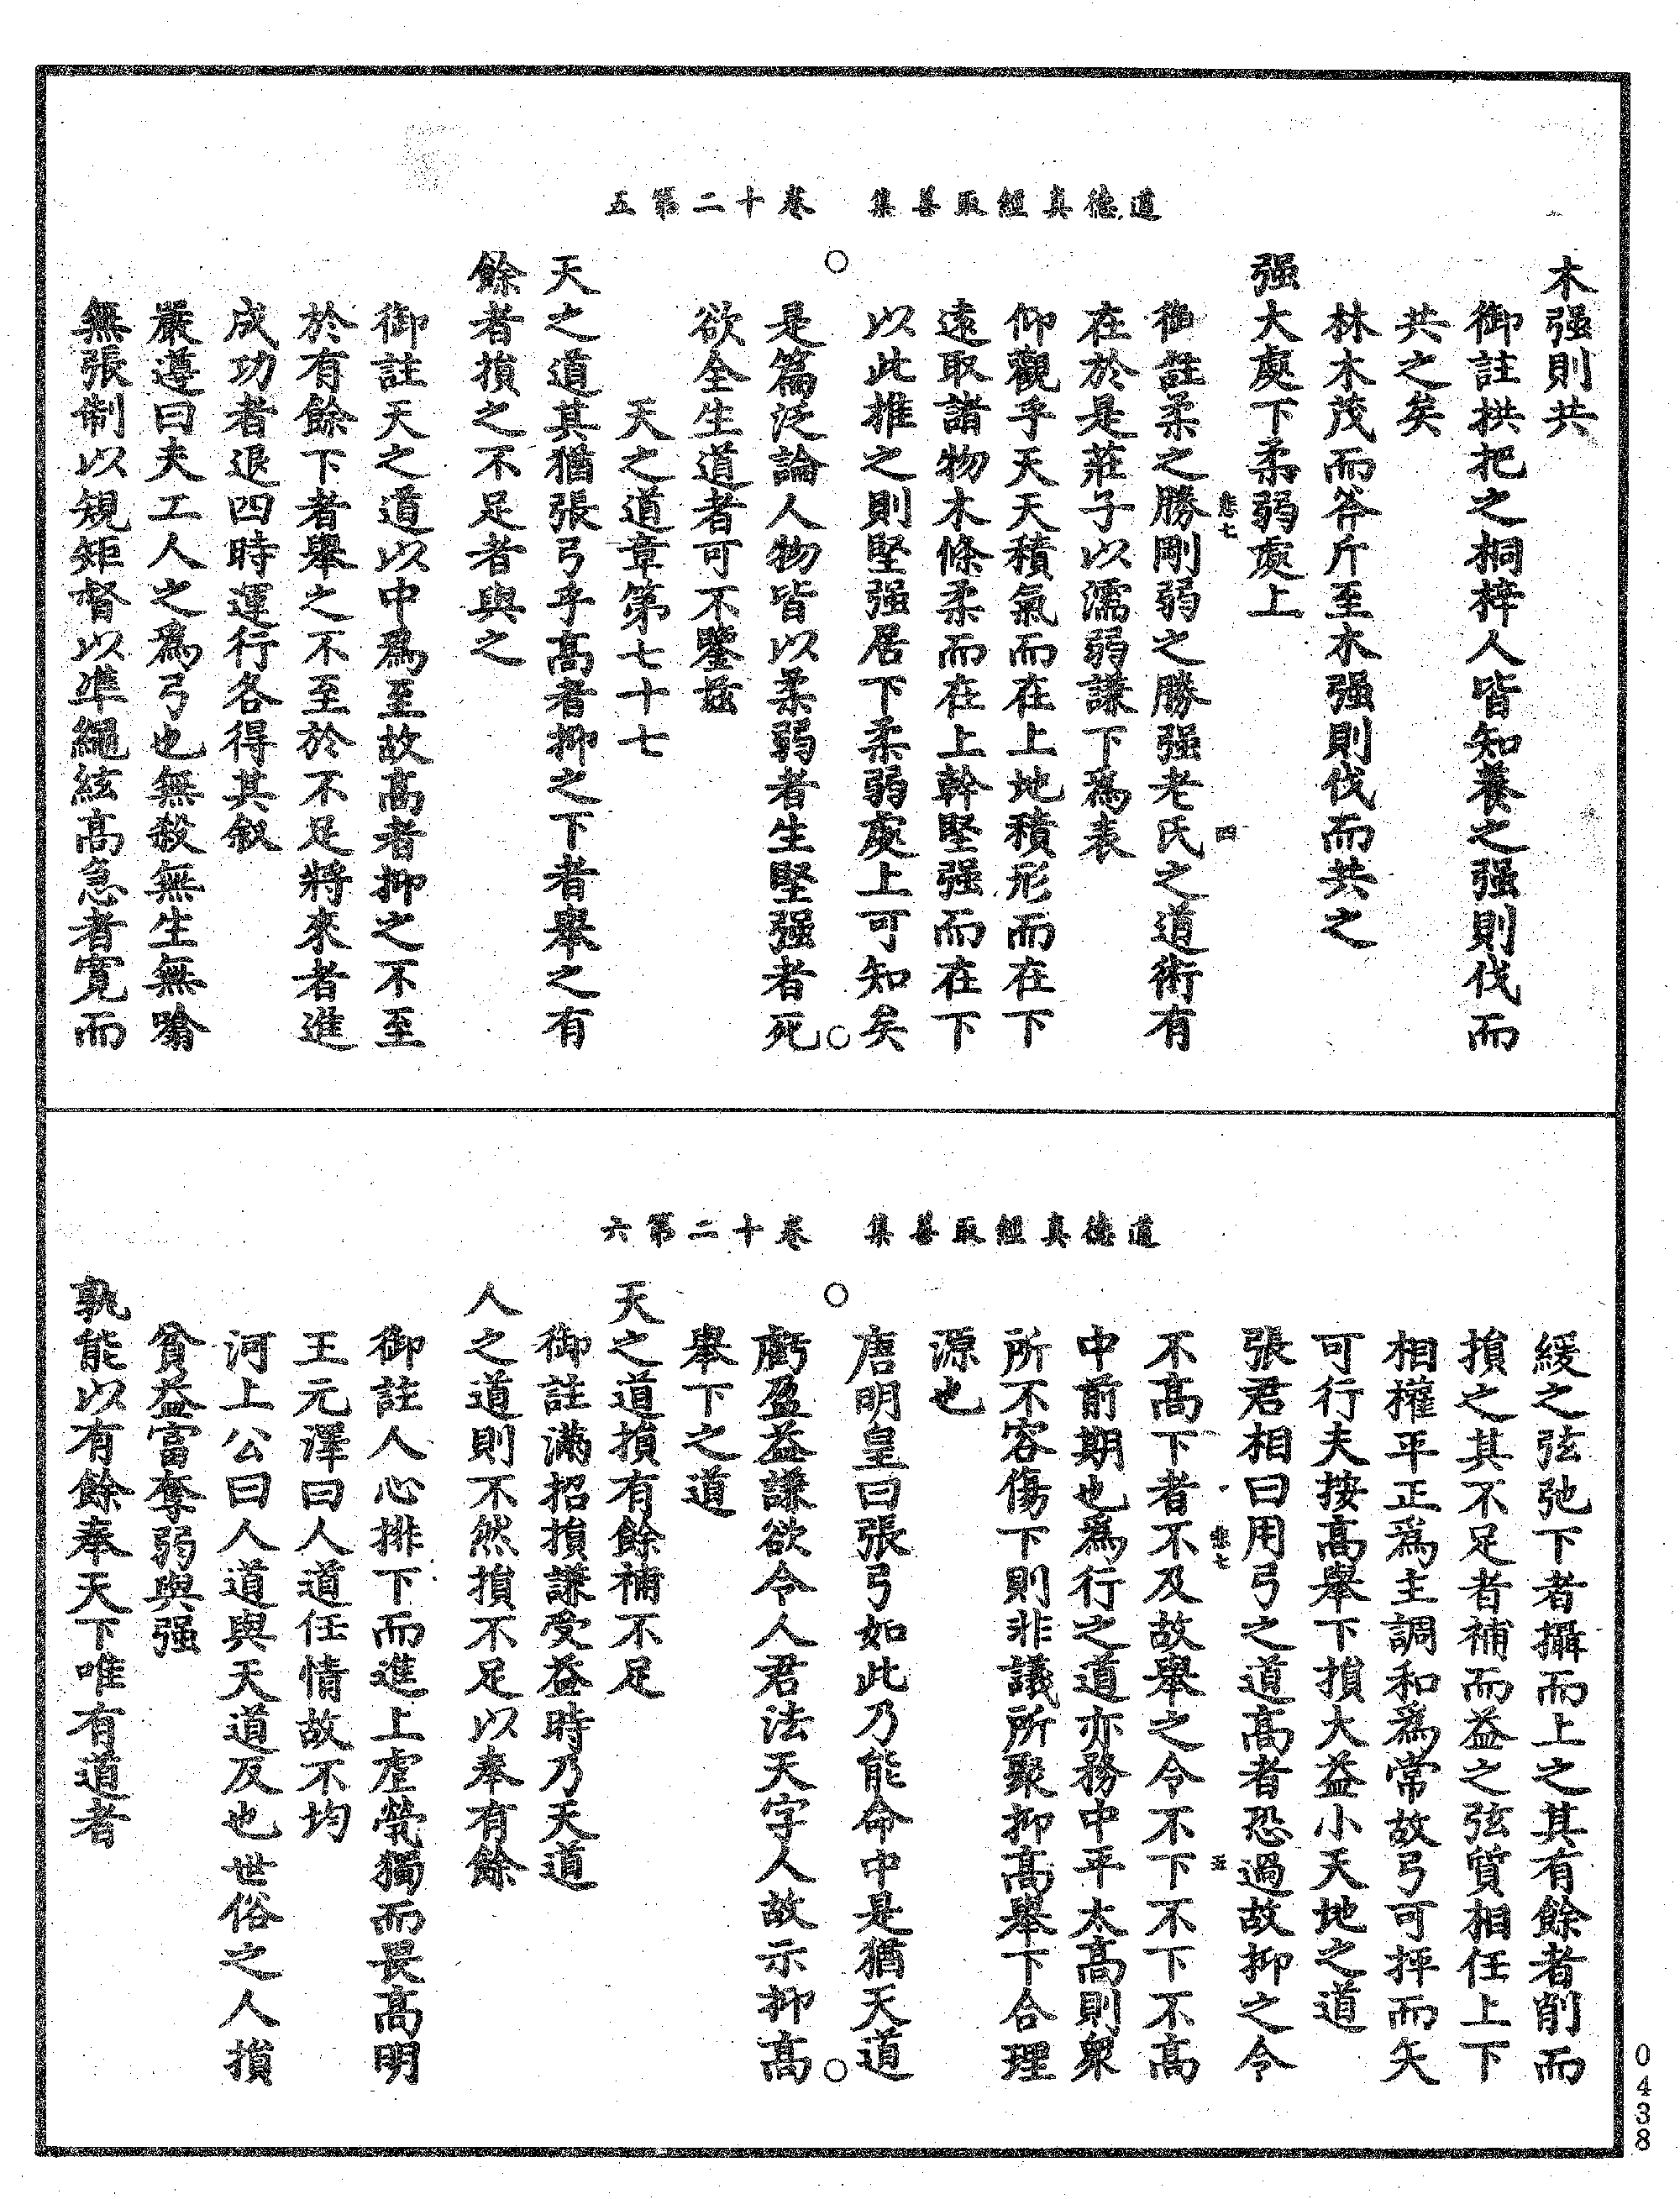 道德真經取善集　卷十二第五
木强則共
御註拱把之桐梓人皆知養之强則伐而
共之矣
林木茂而斧斤至木强則伐而共之
强大處下柔弱處上
悲七　四
御註柔之勝剛弱之勝强老氏之道術有
在於是莊子以濡弱謙下爲表
仰觀乎天天積氣而在上地積形而在下
遠取諸物木條柔而在上幹堅强而在下
以此推之則堅强居下柔弱處上可知矣
○　○
是篇泛論人物皆以柔弱者生堅强者死
欲全生道者可不鑒兹
天之道章第七十七
天之道其猶張弓乎高者抑之下者舉之有
餘者損之不足者與之
御註天之道以中爲至故高者抑之不至
於有餘下者舉之不至於不足將來者進
成功者退四時運行各得其叙
嚴遵曰夫工人之爲弓也無殺無生無喻
無張制以規矩督以準繩絃高急者寬而
道德真經取善集　卷十二第六
緩之弦弛下者攝而上之其有餘者削而
損之其不足者補而益之弦質相任上下
相權平正爲主調和爲常故弓可抨而矢
可行夫按高舉下損大益小天地之道
張君相曰用弓之道高者恐過故抑之令
悲七　五
不高下者不及故舉之令不下不下不高
中前期也爲行之道亦務中平太高則衆
所不容傷下則非議所聚抑高舉下合理
源也
唐明皇曰張弓如此乃能命中是猶天道
○　○
虧盈益謙欲令人君法天字人故示抑高
舉下之道
天之道損有餘補不足
御註滿招損謙受益時乃天道
人之道則不然損不足以奉有餘
御註人心排下而進上虐煢獨而畏高明
王元澤曰人道任情故不均
河上公曰人道與天道反也世俗之人損
貧益富奪弱與强
孰能以有餘奉天下唯有道者
0438